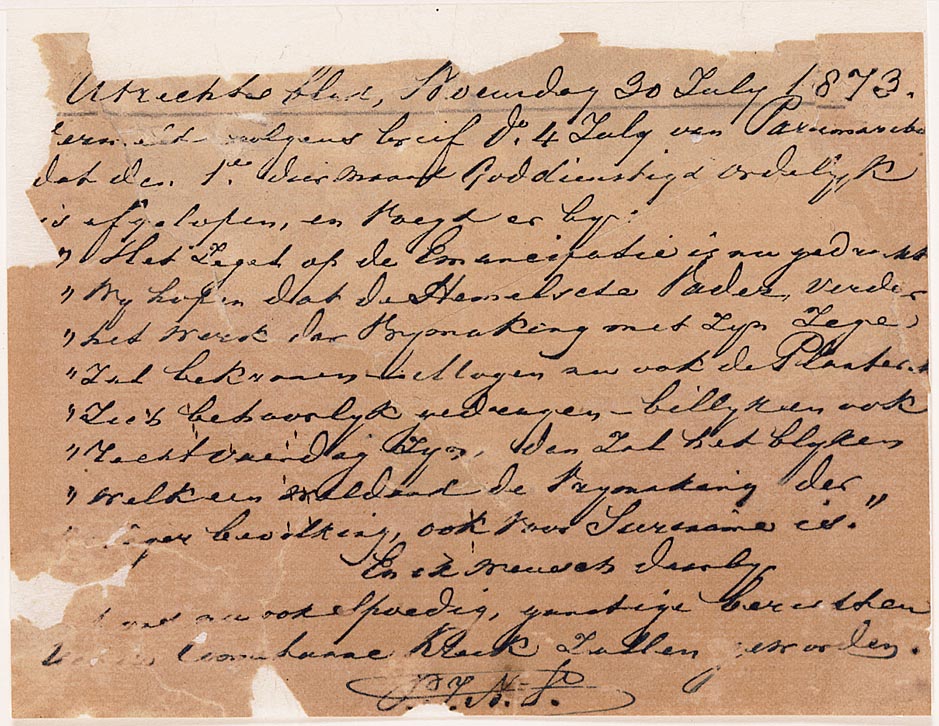 Utrechts blad, Woensdag 30 July 1873.
volgens brief d.º 4 July van Paramaribo
dat den 1.en dier maand Goddienstig & Ordelijk
is afgelopen, en Voegd er by:
" Het Zegel op de Emancipatie is nu gedrukt
" Wy hopen dat de Hemelsche Vader, verder
" het Werk der Vrymaking met Zyn Zege
" Zal bekroonen - Mogen nu ook de Planters
" Zich behoorlyk gedragen - billyk en ook
" Zachtvaerdig Zyn, dan Zal het blyken
" Welk een Weldaad de Vrymaking der
Neger bevolking, ook Voor Suriname is."
En ik Wensch daarby
nu ook spoedig, gunstige berichten
Kreek Zullen geworden.